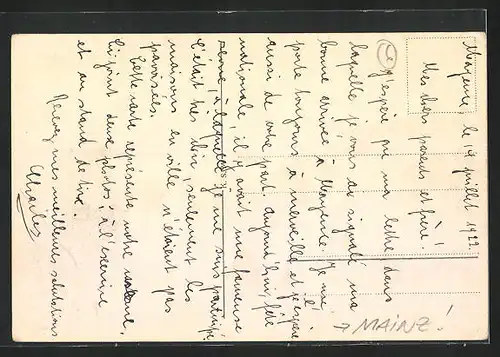 Mayence, le 14 juillet 1922
Mes chers parents et frère!
J'espère que ma lettre dans
laquelle je vous ai signalé ma
bonne arrivée à Mayence. Je me
porte toujours à merveille et j'espère
aussi de votre part. Aujourd'hui, fête
nationale, il y avait une fameuse
revue, à laquelle je me suis
C'était très bien, seulement les
maisons en ville n'étaient pas
pavoisées.
Cette carte représente notre
Ci-joint deux photos, à l'escrime
et au stand de tire.
Recevez mes meilleures salutations
Charles
→ MAINZ!